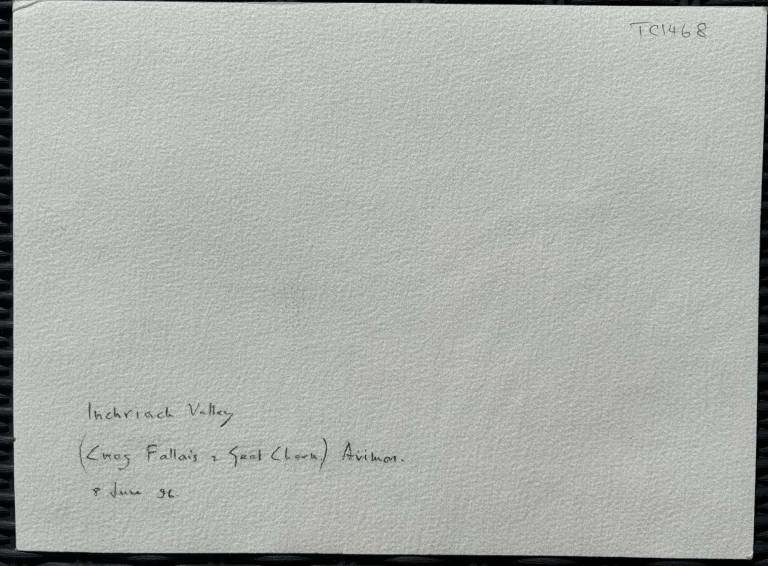 TC1468
Inchriach Valley
(Creag Fallais & Geal Charn) Aviemore.
8 June 96